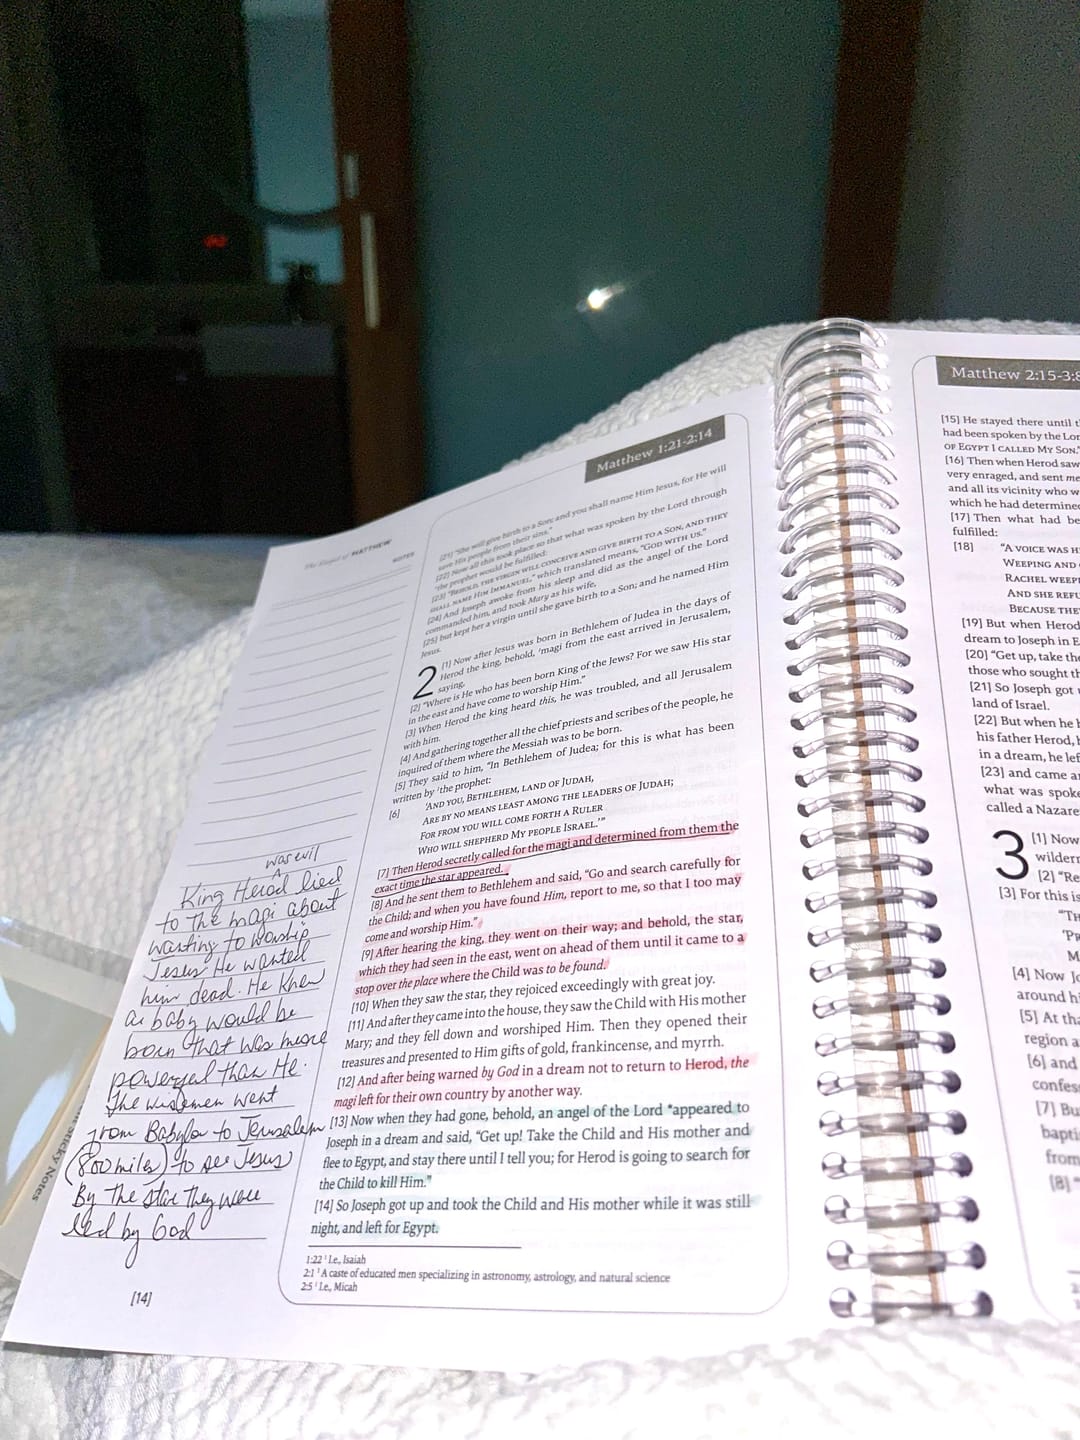 The Gospel of MATTHEW
NOTES
was evil
King Herod lied
to the magi about
wanting to worship
Jesus He wanted
him dead. He knew
a baby would be
born that was more
powerful than He.
The wisemen went
from Babylon to Jerusalem
(800 miles) to see Jesus
By the star they were
led by God
[14]
Sticky Notes
Matthew 1:21-2:14
[21] "She will give birth to a Son; and you shall name Him Jesus, for He will
save His people from their sins."
[22] Now all this took place so that what was spoken by the Lord through
the prophet would be fulfilled:
[23] "BEHOLD, THE VIRGIN WILL CONCEIVE AND GIVE BIRTH TO A SON, AND THEY
SHALL NAME HIM IMMANUEL," which translated means, "GOD WITH US."
[24] And Joseph awoke from his sleep and did as the angel of the Lord
commanded him, and took Mary as his wife,
[25] but kept her a virgin until she gave birth to a Son; and he named Him
Jesus.
2 [1] Now after Jesus was born in Bethlehem of Judea in the days of
Herod the king, behold, ¹magi from the east arrived in Jerusalem,
saying,
[2] "Where is He who has been born King of the Jews? For we saw His star
in the east and have come to worship Him."
[3] When Herod the king heard this, he was troubled, and all Jerusalem
with him.
[4] And gathering together all the chief priests and scribes of the people, he
inquired of them where the Messiah was to be born.
[5] They said to him, "In Bethlehem of Judea; for this is what has been
written by ¹the prophet:
[6] 'AND YOU, BETHLEHEM, LAND OF JUDAH,
ARE BY NO MEANS LEAST AMONG THE LEADERS OF JUDAH;
FOR FROM YOU WILL COME FORTH A RULER
WHO WILL SHEPHERD MY PEOPLE ISRAEL.'"
[7] Then Herod secretly called for the magi and determined from them the
exact time the star appeared.
[8] And he sent them to Bethlehem and said, "Go and search carefully for
the Child; and when you have found Him, report to me, so that I too may
come and worship Him."
[9] After hearing the king, they went on their way; and behold, the star,
which they had seen in the east, went on ahead of them until it came to a
stop over the place where the Child was to be found.
[10] When they saw the star, they rejoiced exceedingly with great joy.
[11] And after they came into the house, they saw the Child with His mother
Mary; and they fell down and worshiped Him. Then they opened their
treasures and presented to Him gifts of gold, frankincense, and myrrh.
[12] And after being warned by God in a dream not to return to Herod, the
magi left for their own country by another way.
[13] Now when they had gone, behold, an angel of the Lord *appeared to
Joseph in a dream and said, "Get up! Take the Child and His mother and
flee to Egypt, and stay there until I tell you; for Herod is going to search for
the Child to kill Him."
[14] So Joseph got up and took the Child and His mother while it was still
night, and left for Egypt.
1:22 ¹ I.e., Isaiah
2:1 ¹ A caste of educated men specializing in astronomy, astrology, and natural science
2:5 ¹ I.e., Micah
Matthew 2:15-3:8
[15] He stayed there until
had been spoken by the Lor
OF EGYPT I CALLED MY SON."
[16] Then when Herod saw
very enraged, and sent me
and all its vicinity who w
which he had determined
[17] Then what had be
fulfilled:
[18] "A VOICE WAS H
WEEPING AND
RACHEL WEEP
AND SHE REFU
BECAUSE THE
[19] But when Herod
dream to Joseph in E
[20] "Get up, take the
those who sought th
[21] So Joseph got
land of Israel.
[22] But when he h
his father Herod,
in a dream, he lef
[23] and came a
what was spoke
called a Nazare
3 [1] Now
wildern
[2] "Re
[3] For this is
"TH
'PR
M
[4] Now Jo
around hi
[5] At tha
region a
[6] and
confess
[7] Bu
bapti
from
[8] "